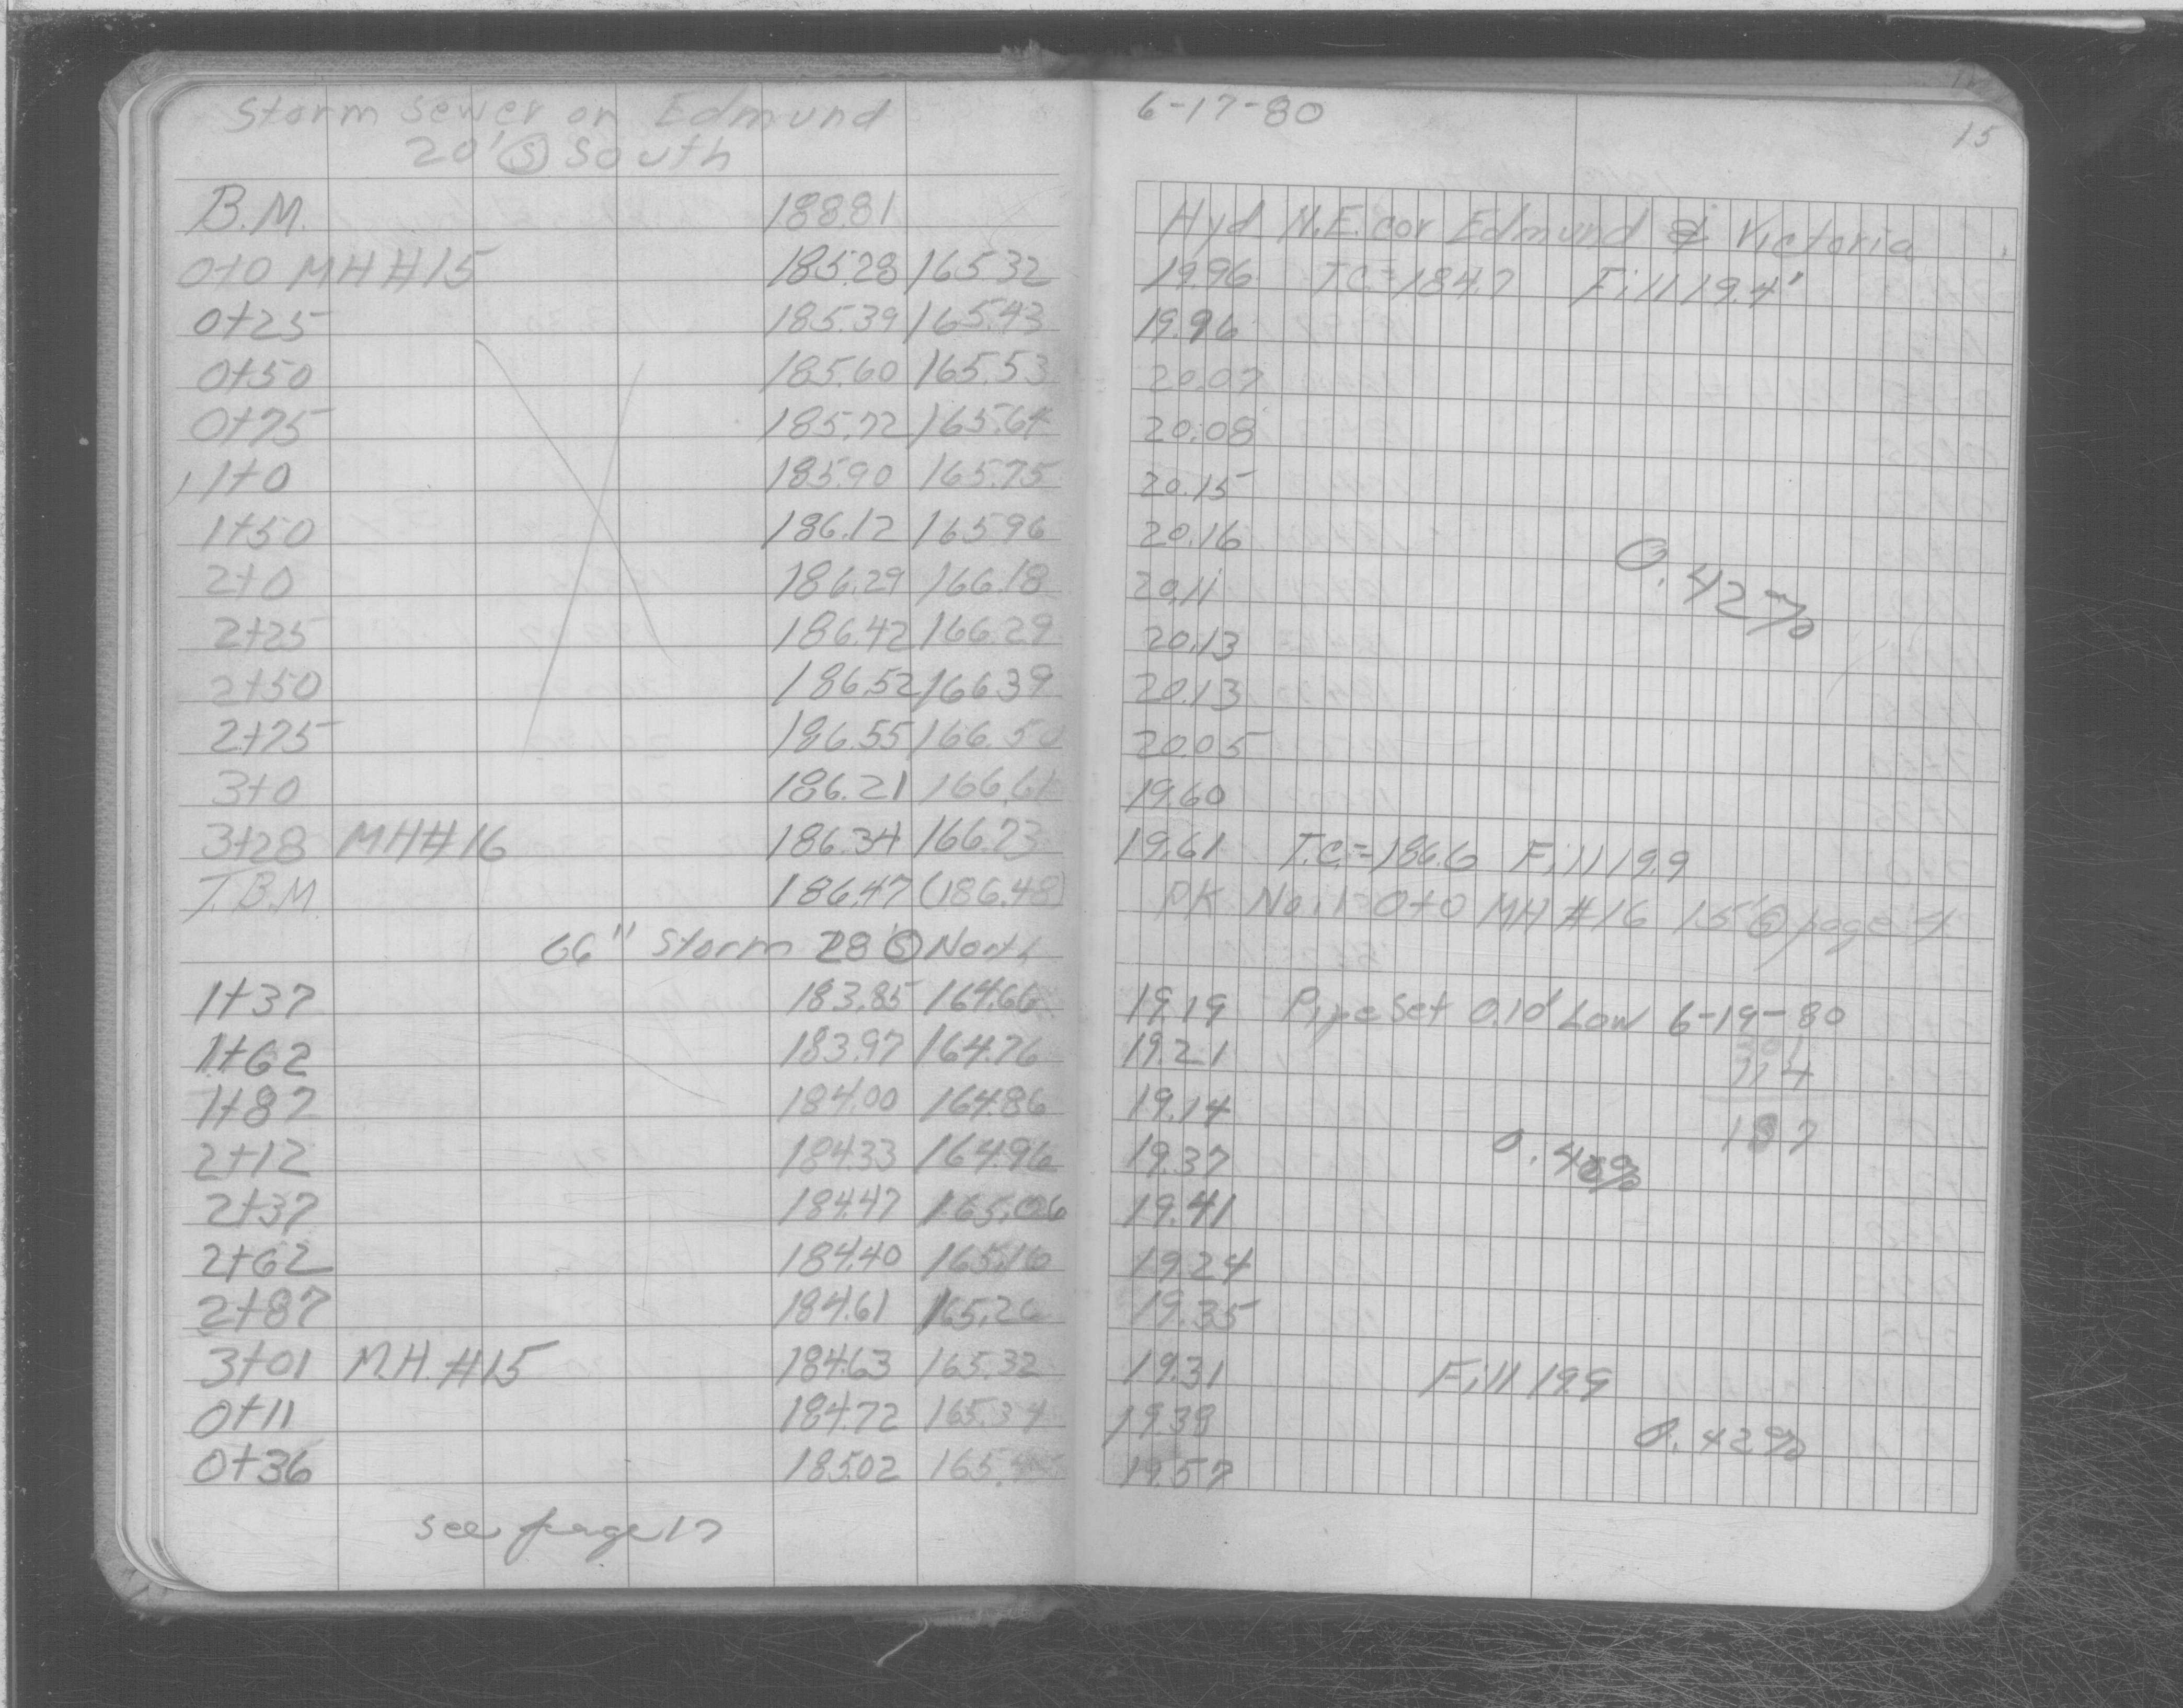 Storm sewer on Edmund
20' Ⓢ South
B.M. 188.81
0+0 MH #15 185.28 165.32
0+25 185.39 165.43
0+50 185.60 165.53
0+75 185.72 165.64
1+0 185.90 165.75
1+50 186.12 165.96
2+0 186.29 166.18
2+25 186.42 166.29
2+50 186.52 166.39
2+75 186.55 166.50
3+0 186.21 166.61
3+28 MH#16 186.34 166.73
T.B.M. 186.47 (186.48)
66" Storm 28' Ⓢ North
1+37 183.85 164.66
1+62 183.97 164.76
1+87 184.00 164.86
2+12 184.33 164.96
2+37 184.47 165.06
2+62 184.40 165.16
2+87 184.61 165.26
3+01 M.H. #15 184.63 165.32
0+11 184.72 165.34
0+36 185.02 165.45
see page 17
6-17-80
15
Hyd N.E. cor Edmund & Victoria
19.96 T.C.=184.7 Fill 19.4'
19.96
20.07
20.08
20.15
20.16
0.42%
20.11
20.13
20.13
20.05
19.60
19.61 T.C.=186.6 Fill 19.9
PK No.1=0+0 MH #16 15' Ⓢ page 4
19.19 Pipe Set 0.10' Low 6-19-80
19.21 301
114
19.14
187
19.37 0.40%
19.41
19.24
19.35
19.31 Fill 19.9
19.38
0.42%
19.57